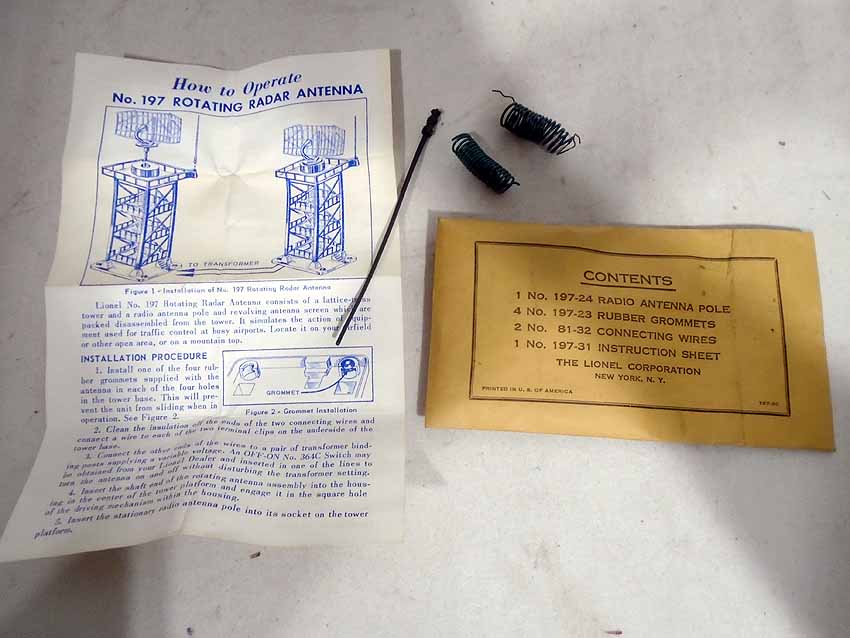 How to Operate
No. 197 ROTATING RADAR ANTENNA
TO TRANSFORMER
Figure 1 - Installation of No. 197 Rotating Radar Antenna
Lionel No. 197 Rotating Radar Antenna consists of a lattice-
tower and a radio antenna pole and revolving antenna screen which are
packed disassembled from the tower. It simulates the action of equip-
ment used for traffic control at busy airports. Locate it on your airfield
or other open area, or on a mountain top.
INSTALLATION PROCEDURE
1. Install one of the four rub-
ber grommets supplied with the
antenna in each of the four holes
in the tower base. This will pre-
vent the unit from sliding when in
operation. See Figure 2.
GROMMET
Figure 2 - Grommet Installation
2. Clean the insulation off the ends of the two connecting wires and
connect a wire to each of the two terminal clips on the underside of the
tower base.
3. Connect the other ends of the wires to a pair of transformer bind-
ing posts supplying a variable voltage. An OFF-ON No. 364C Switch may
be obtained from your Lionel Dealer and inserted in one of the lines to
turn the antenna on and off without disturbing the transformer setting.
4. Insert the shaft end of the rotating antenna assembly into the hous-
ing in the center of the tower platform and engage it in the square hole
of the driving mechanism within the housing.
5. Insert the stationary radio antenna pole into its socket on the tower
platform.
CONTENTS
1 No. 197-24 RADIO ANTENNA POLE
4 No. 197-23 RUBBER GROMMETS
2 No. 81-32 CONNECTING WIRES
1 No. 197-31 INSTRUCTION SHEET
THE LIONEL CORPORATION
NEW YORK, N. Y.
PRINTED IN U. S. OF AMERICA